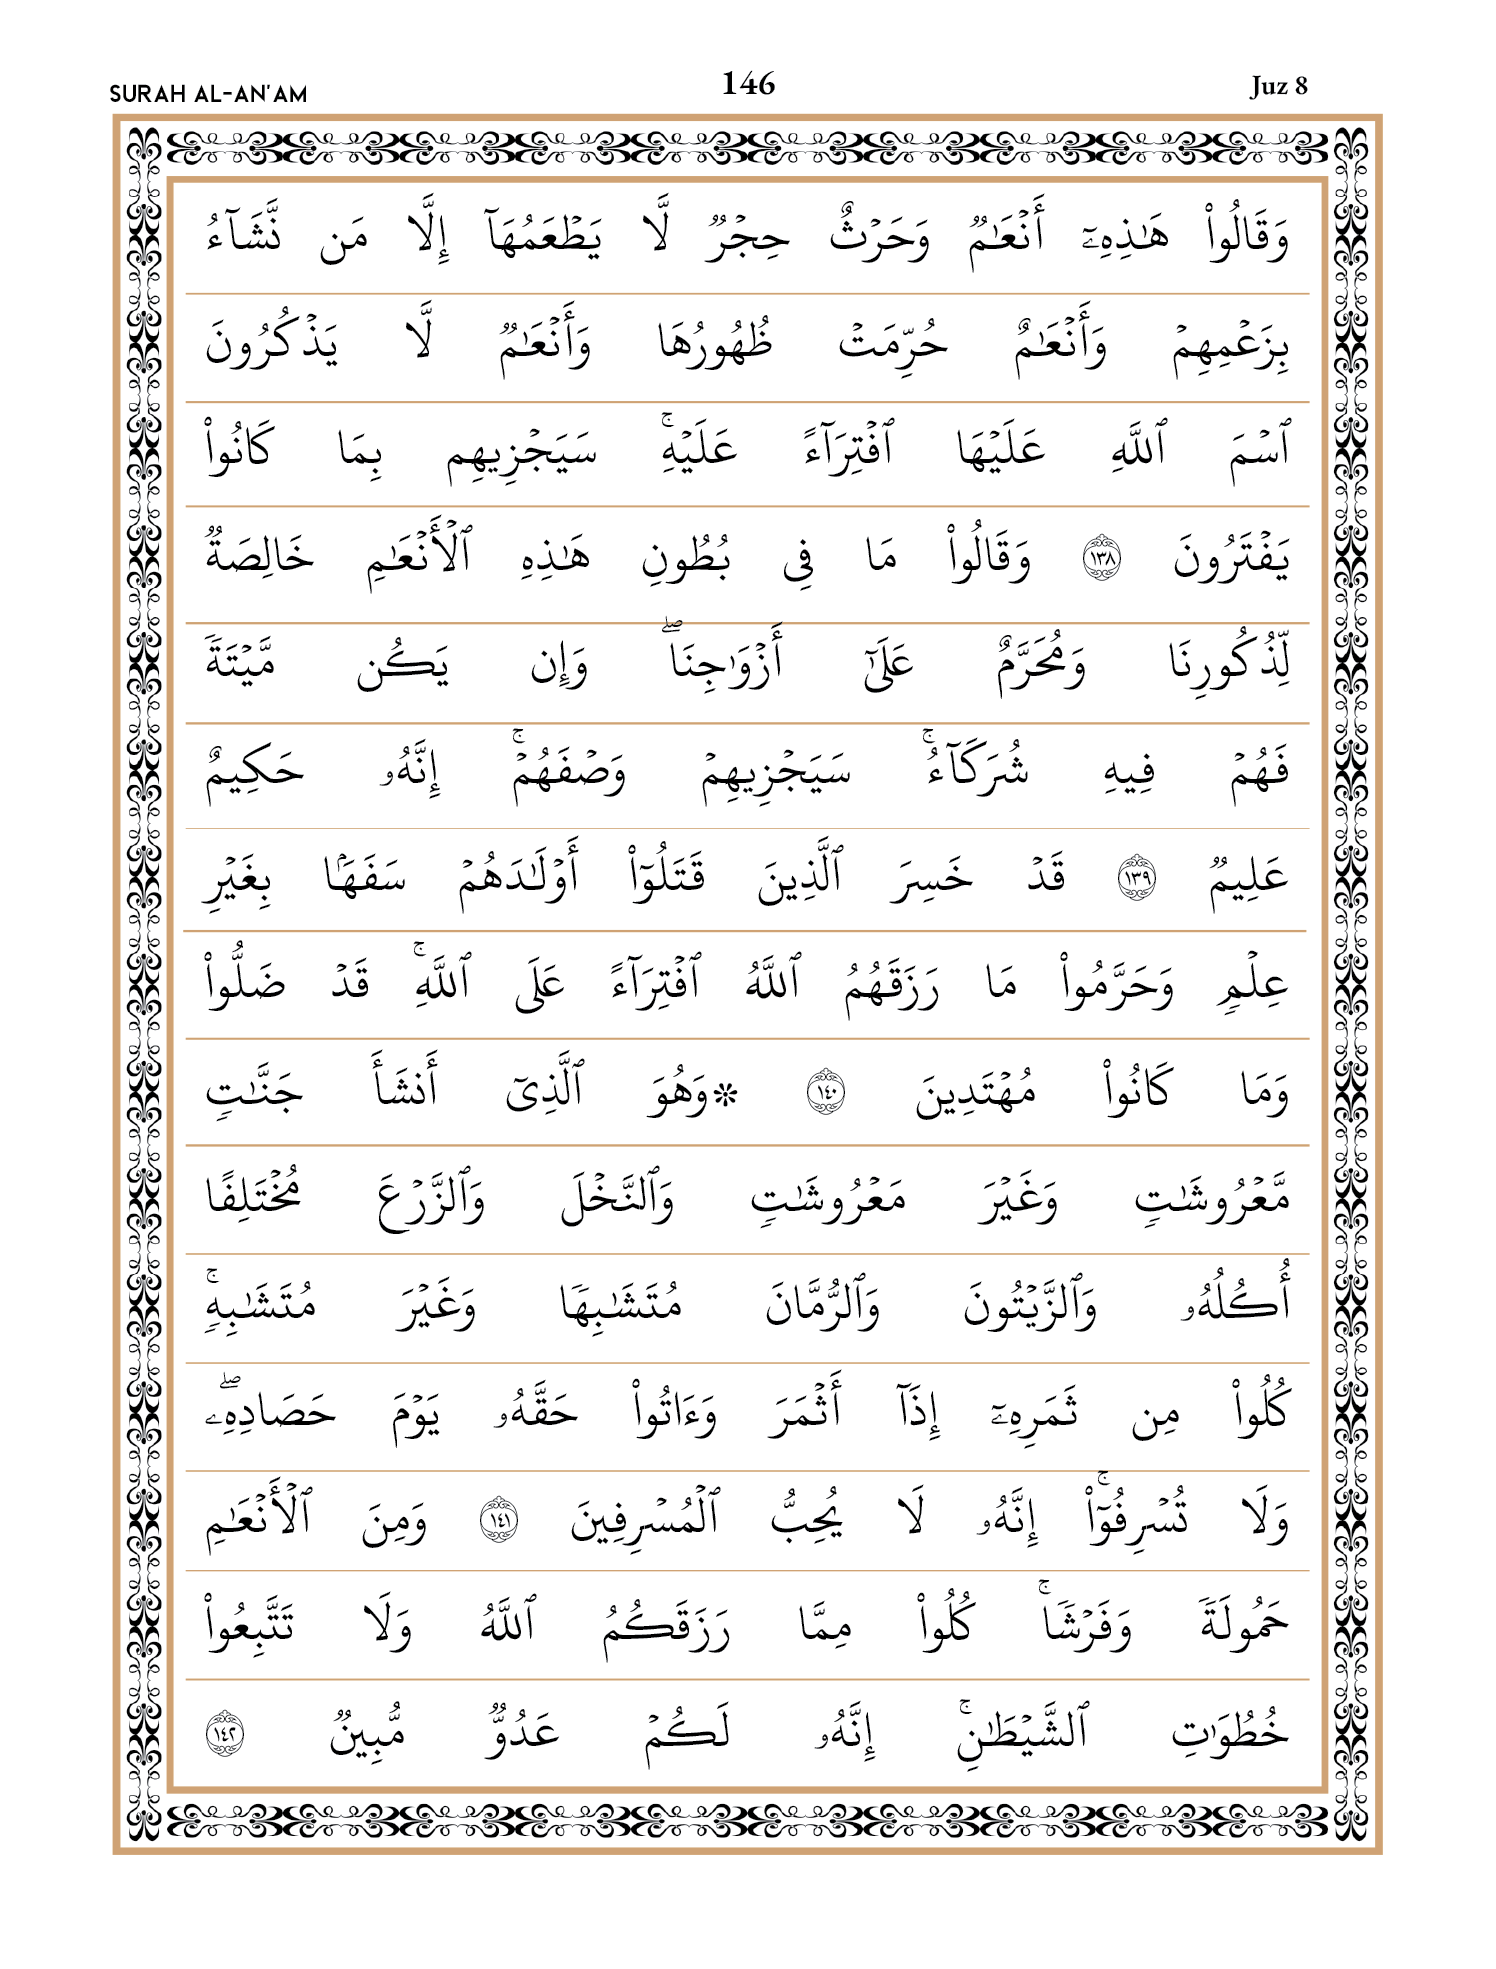 SURAH AL-AN'AM 146 Juz 8
وَقَالُوا۟ هَـٰذِهِۦٓ أَنۡعَـٰمٌۭ وَحَرۡثٌ حِجۡرٌۭ لَّا يَطۡعَمُهَآ إِلَّا مَن نَّشَآءُ
بِزَعۡمِهِمۡ وَأَنۡعَـٰمٌ حُرِّمَتۡ ظُهُورُهَا وَأَنۡعَـٰمٌۭ لَّا يَذۡكُرُونَ
ٱسۡمَ ٱللَّهِ عَلَيۡهَا ٱفۡتِرَآءً عَلَيۡهِۚ سَيَجۡزِيهِم بِمَا كَانُوا۟
يَفۡتَرُونَ ١٣٨ وَقَالُوا۟ مَا فِى بُطُونِ هَـٰذِهِ ٱلۡأَنۡعَـٰمِ خَالِصَةٌۭ
لِّذُكُورِنَا وَمُحَرَّمٌ عَلَىٰٓ أَزۡوَٰجِنَاۖ وَإِن يَكُن مَّيۡتَةًۭ
فَهُمۡ فِيهِ شُرَكَآءُۚ سَيَجۡزِيهِمۡ وَصۡفَهُمۡۚ إِنَّهُۥ حَكِيمٌ
عَلِيمٌۭ ١٣٩ قَدۡ خَسِرَ ٱلَّذِينَ قَتَلُوٓا۟ أَوۡلَـٰدَهُمۡ سَفَهَۢا بِغَيۡرِ
عِلۡمٍۢ وَحَرَّمُوا۟ مَا رَزَقَهُمُ ٱللَّهُ ٱفۡتِرَآءً عَلَى ٱللَّهِۚ قَدۡ ضَلُّوا۟
وَمَا كَانُوا۟ مُهۡتَدِينَ ١٤٠ ۞وَهُوَ ٱلَّذِىٓ أَنشَأَ جَنَّـٰتٍۢ
مَّعۡرُوشَـٰتٍۢ وَغَيۡرَ مَعۡرُوشَـٰتٍۢ وَٱلنَّخۡلَ وَٱلزَّرۡعَ مُخۡتَلِفًا
أُكُلُهُۥ وَٱلزَّيۡتُونَ وَٱلرُّمَّانَ مُتَشَـٰبِهًۭا وَغَيۡرَ مُتَشَـٰبِهٍۢۚ
كُلُوا۟ مِن ثَمَرِهِۦٓ إِذَآ أَثۡمَرَ وَءَاتُوا۟ حَقَّهُۥ يَوۡمَ حَصَادِهِۦۖ
وَلَا تُسۡرِفُوٓا۟ۚ إِنَّهُۥ لَا يُحِبُّ ٱلۡمُسۡرِفِينَ ١٤١ وَمِنَ ٱلۡأَنۡعَـٰمِ
حَمُولَةًۭ وَفَرۡشًۭاۚ كُلُوا۟ مِمَّا رَزَقَكُمُ ٱللَّهُ وَلَا تَتَّبِعُوا۟
خُطُوَٰتِ ٱلشَّيۡطَـٰنِۚ إِنَّهُۥ لَكُمۡ عَدُوٌّۭ مُّبِينٌۭ ١٤٢